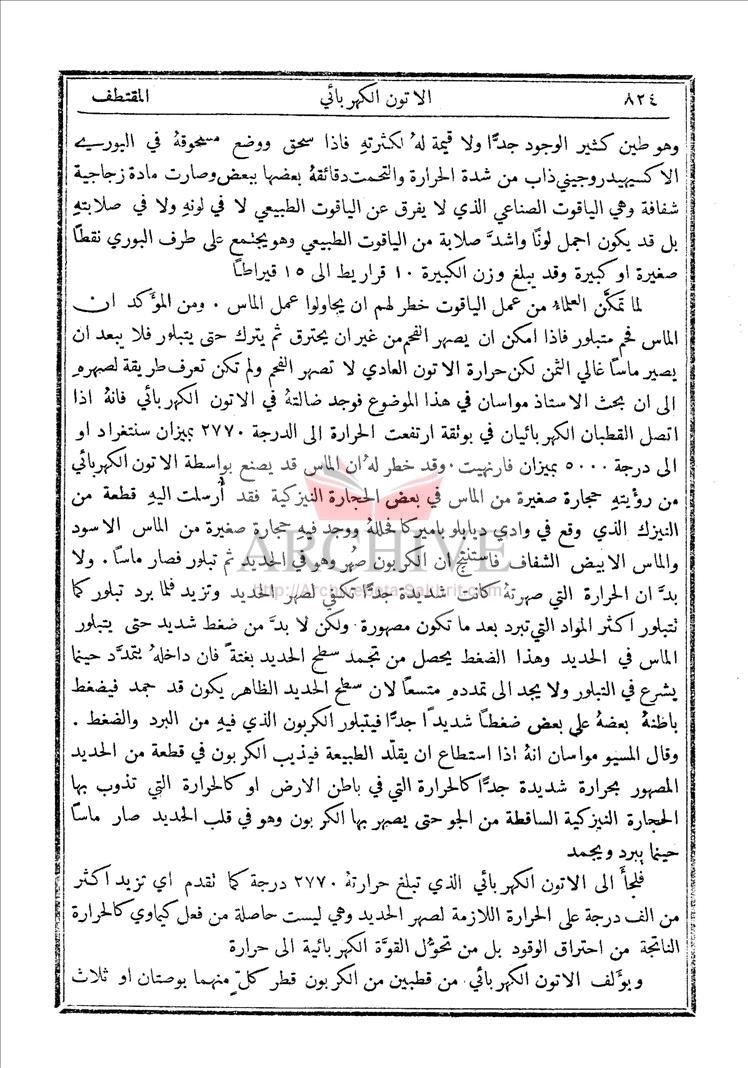 ٨٢٤ الاتون الكهربائي المقتطف
وهو طين كثير الوجود جدًّا ولا قيمة لهُ لكثرتهِ فاذا سحق ووضع مسحوقهُ في البوريـــ
الاكسيهيدروجيني ذاب من شدة الحرارة والتحمت دقائقهُ بعضها ببعض وصارت مادة زجاجية
شفافة وهي الياقوت الصناعي الذي لا يفرق عن الياقوت الطبيعي لا في لونهِ ولا في صلابتهِ
بل قد يكون اجمل لونًا واشدَّ صلابة من الياقوت الطبيعي وهو يجتمع على طرف البوري نقطًا
صغيرة او كبيرة وقد يبلغ وزن الكبيرة ١٠ قراريط الى ١٥ قيراطًا
لما تمكَّن العلماءُ من عمل الياقوت خطر لهم ان يحاولوا عمل الماس . ومن المؤكد ان
الماس فحم متبلور فاذا امكن ان يصهر الفحم من غير ان يحترق ثم يترك حتى يتبلور فلا يبعد ان
يصير ماسًا غالي الثمن لكن حرارة الاتون العادي لا تصهر الفحم ولم تكن تعرف طريقة لصهرهِ
الى ان بحث الاستاذ مواسان في هذا الموضوع فوجد ضالتهُ في الاتون الكهربائي فانهُ اذا
اتصل القطبان الكهربائيان في بوثقة ارتفعت الحرارة الى الدرجة ٢٧٧٠ بميزان سنتغراد او
الى درجة ٥٠٠٠ بميزان فارنهيت . وقد خطر لهُ ان الماس قد يصنع بواسطة الاتون الكهربائي
من رؤيتهِ حجارة صغيرة من الماس في بعض الحجارة النيزكية فقد أُرسلت اليهِ قطعة من
النيزك الذي وقع في وادي ديابلو باميركا فحللهُ ووجد فيهِ حجارة صغيرة من الماس الاسود
والماس الابيض الشفاف فاستنتج ان الكربون صُهر وهو في الحديد ثم تبلور فصار ماسًا . ولا
بدَّ ان الحرارة التي صهرتهُ كانت شديدة جدًّا تكفي لصهر الحديد وتزيد فلما برد تبلور كما
تتبلور اكثر المواد التي تبرد بعد ما تكون مصهورة . ولكن لا بدَّ من ضغط شديد حتى يتبلور
الماس في الحديد وهذا الضغط يحصل من تجمد سطح الحديد بغتةً فان داخلهُ يتمدَّد حينما
يشرع في التبلور ولا يجد الى تمددهِ متسعًا لان سطح الحديد الظاهر يكون قد جمد فيضغط
باطنهُ بعضهُ على بعض ضغطًا شديدًا جدًّا فيتبلور الكربون الذي فيهِ من البرد والضغط .
وقال المسيو مواسان انهُ اذا استطاع ان يقلّد الطبيعة فيذيب الكربون في قطعة من الحديد
المصهور بحرارة شديدة جدًّا كالحرارة التي في باطن الارض او كالحرارة التي تذوب بها
الحجارة النيزكية الساقطة من الجو حتى يصهر بها الكربون وهو في قلب الحديد صار ماسًا
حينما يبرد ويجمد
فلجأَ الى الاتون الكهربائي الذي تبلغ حرارتهُ ٢٧٧٠ درجة كما تقدم اي تزيد اكثر
من الف درجة على الحرارة اللازمة لصهر الحديد وهي ليست حاصلة من فعل كيماوي كالحرارة
الناتجة من احتراق الوقود بل من تحوُّل القوَّة الكهربائية الى حرارة
ويؤلف الاتون الكهربائي من قطبين من الكربون قطر كلٍّ منهما بوصتان او ثلاث
ARCHIVE
http://Archivebeta.Sakhrit.com